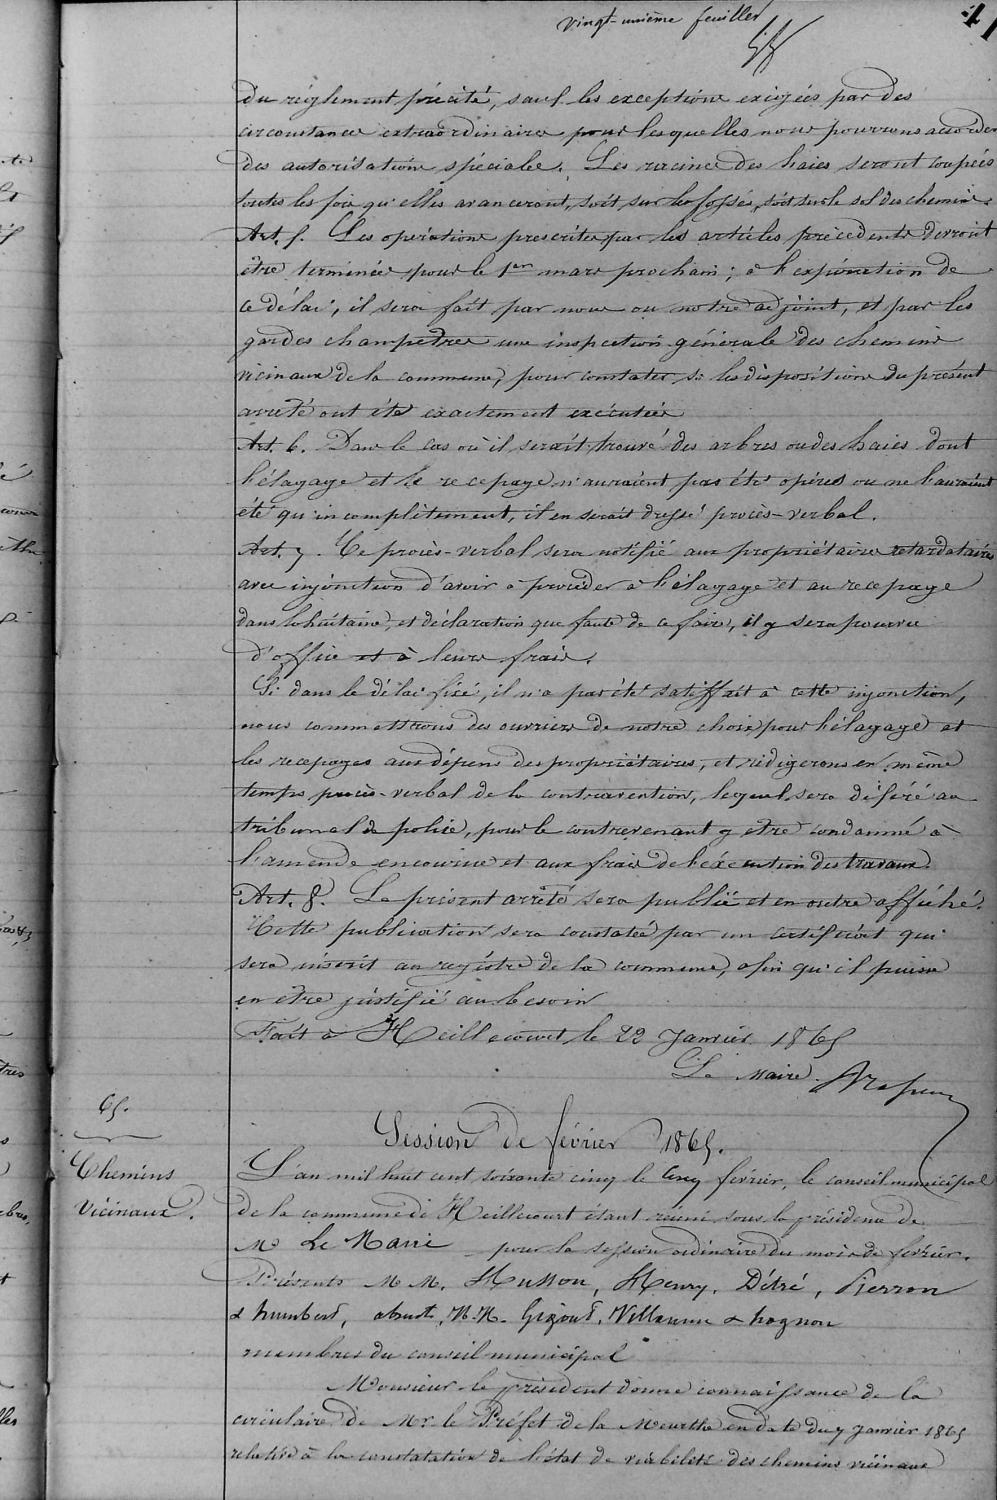 vingt-unième feuillet
41
du règlement précité, sauf les exceptions exigées par des
circonstances extraordinaires pour lesquelles nous pourrons accorder
des autorisations spéciales. Les racines des haies seront coupées
toutes les fois qu'elles avanceront, soit sur les fossés, soit sur le sol des chemins.
Art. 5. Les opérations prescrites par les articles précédents devront
être terminées pour le 1er mars prochain ; à l'expiration de
ce délai, il sera fait par nous ou notre adjoint, et par les
gardes champêtres une inspection générale des chemins
vicinaux de la commune, pour constater si les dispositions du présent
arrêté ont été exactement exécutées
Art. 6. Dans le cas où il serait trouvé des arbres ou des haies dont
l'élagage et le recepage n'auraient pas été opérés ou ne l'auraient
été qu'incomplètement, il en serait dressé procès-verbal.
Art. 7. Ce procès-verbal sera notifié aux propriétaires retardataires
avec injonction d'avoir à procéder à l'élagage et au recepage
dans la huitaine, et déclaration que faute de ce faire, il y sera pourvu
d'office et à leurs frais.
Si dans le délai fixé, il n'a pas été satisffait à cette injonction,
nous commettrons des ouvriers de notre choix pour l'élagage et
les recepages aux dépens des propriétaires, et rédigerons en même
temps procès-verbal de la contravention, lequel sera déféré au
tribunal de police, pour le contrevenant y être condamné à
l'amende encourue et aux frais de l'exécution des travaux.
Art. 8. Le présent arrêté sera publié et en outre affiché.
Cette publication sera constatée par un certificat qui
sera inscrit au registre de la commune, afin qu'il puisse
en être justifié au besoin
Fait à Heillecourt le 22 Janvier 1865
Le Maire
65.
Chemins
Vicinaux.
Session de février 1865.
L'an mil huit cent soixante cinq le cinq février, le conseil municipal
de la commune de Heillecourt étant réuni sous la présidence de
Mr Le Maire pour la session ordinaire du mois de février.
Présents M M. Husson, Henry, Détré, Pierron
& humbert, absent, M.M. Gigout, Villaume & hognon
membres du conseil municipal
Monsieur le président donne connaissance de la
circulaire de Mr. le Préfet de la Meurthe en date du 7 janvier 1865
relative à la constatation de l'état de viabilité des chemins vicinaux